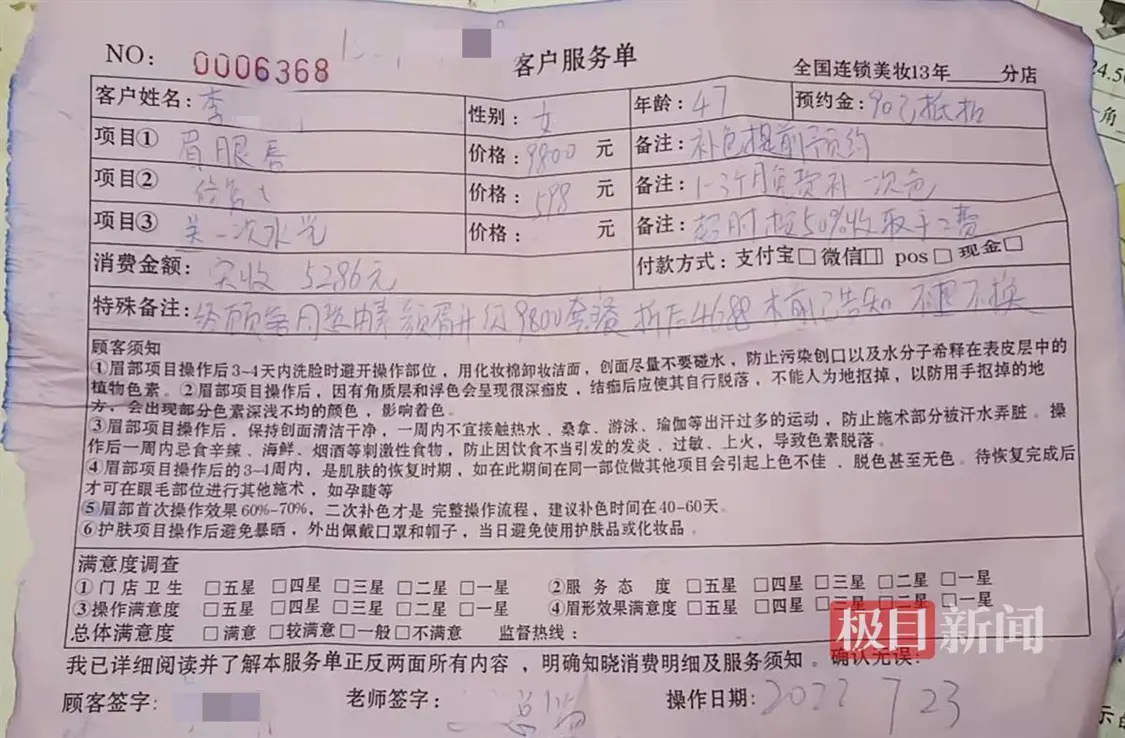 NO: 0006368 客户服务单 全国连锁美妆13年 分店
客户姓名: 李 性别: 女 年龄: 47 预约金: 90已抵扣
项目① 眉眼唇 价格: 9800 元 备注: 补色提前预约
项目② 价格: 598 元 备注: 1-3个月免费补一次色
项目③ 一次水光 价格: 元 备注: 超时按50%收取手工费
消费金额: 实收 5286元 付款方式: 支付宝□ 微信□ pos□ 现金□
特殊备注: 经顾客同意 9800套餐 折后4688 术前已告知 不退不换
顾客须知
①眉部项目操作后3-4天内洗脸时避开操作部位，用化妆棉卸妆洁面，创面尽量不要碰水，防止污染创口以及水分子希释在表皮层中的
植物色素。②眉部项目操作后，因有角质层和浮色会呈现很深痂皮，结痂后应使其自行脱落，不能人为地抠掉，以防用手抠掉的地
方，会出现部分色素深浅不均的颜色，影响着色。
③眉部项目操作后，保持创面清洁干净，一周内不宜接触热水、桑拿、游泳、瑜伽等出汗过多的运动，防止施术部分被汗水弄脏。操
作后一周内忌食辛辣、海鲜、烟酒等刺激性食物，防止因饮食不当引发的发炎、过敏、上火，导致色素脱落。
④眉部项目操作后的3-4周内，是肌肤的恢复时期，如在此期间在同一部位做其他项目会引起上色不佳、脱色甚至无色。待恢复完成后
才可在眼毛部位进行其他施术，如孕睫等
⑤眉部首次操作效果60%-70%，二次补色才是 完整操作流程，建议补色时间在40-60天。
⑥护肤项目操作后避免暴晒，外出佩戴口罩和帽子，当日避免使用护肤品或化妆品。
满意度调查
①门店卫生 □五星 □四星 □三星 □二星 □一星 ②服务态度 □五星 □四星 □三星 □二星 □一星
③操作满意度 □五星 □四星 □三星 □二星 □一星 ④眉形效果满意度 □五星 □四星 □三星 □二星 □一星
总体满意度 □满意 □较满意 □一般 □不满意 监督热线:
极目新闻
我已详细阅读并了解本服务单正反两面所有内容，明确知晓消费明细及服务须知。确认无误:
顾客签字: 老师签字: 总监 操作日期: 2022 7 23